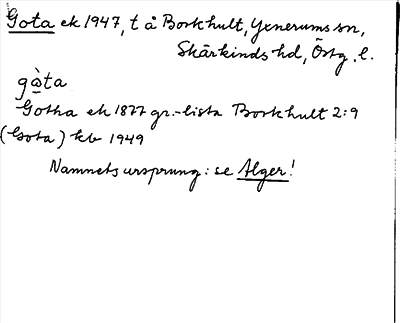 Gota ek 1947, t å Borkhult, Yxnerums sn,
Skärkinds hd, Östg. l.
gò̱ta
Gotha ek 1877 gr.-lista Borkhult 2:9
(Gota) kb 1949
Namnets ursprung: se Alger!